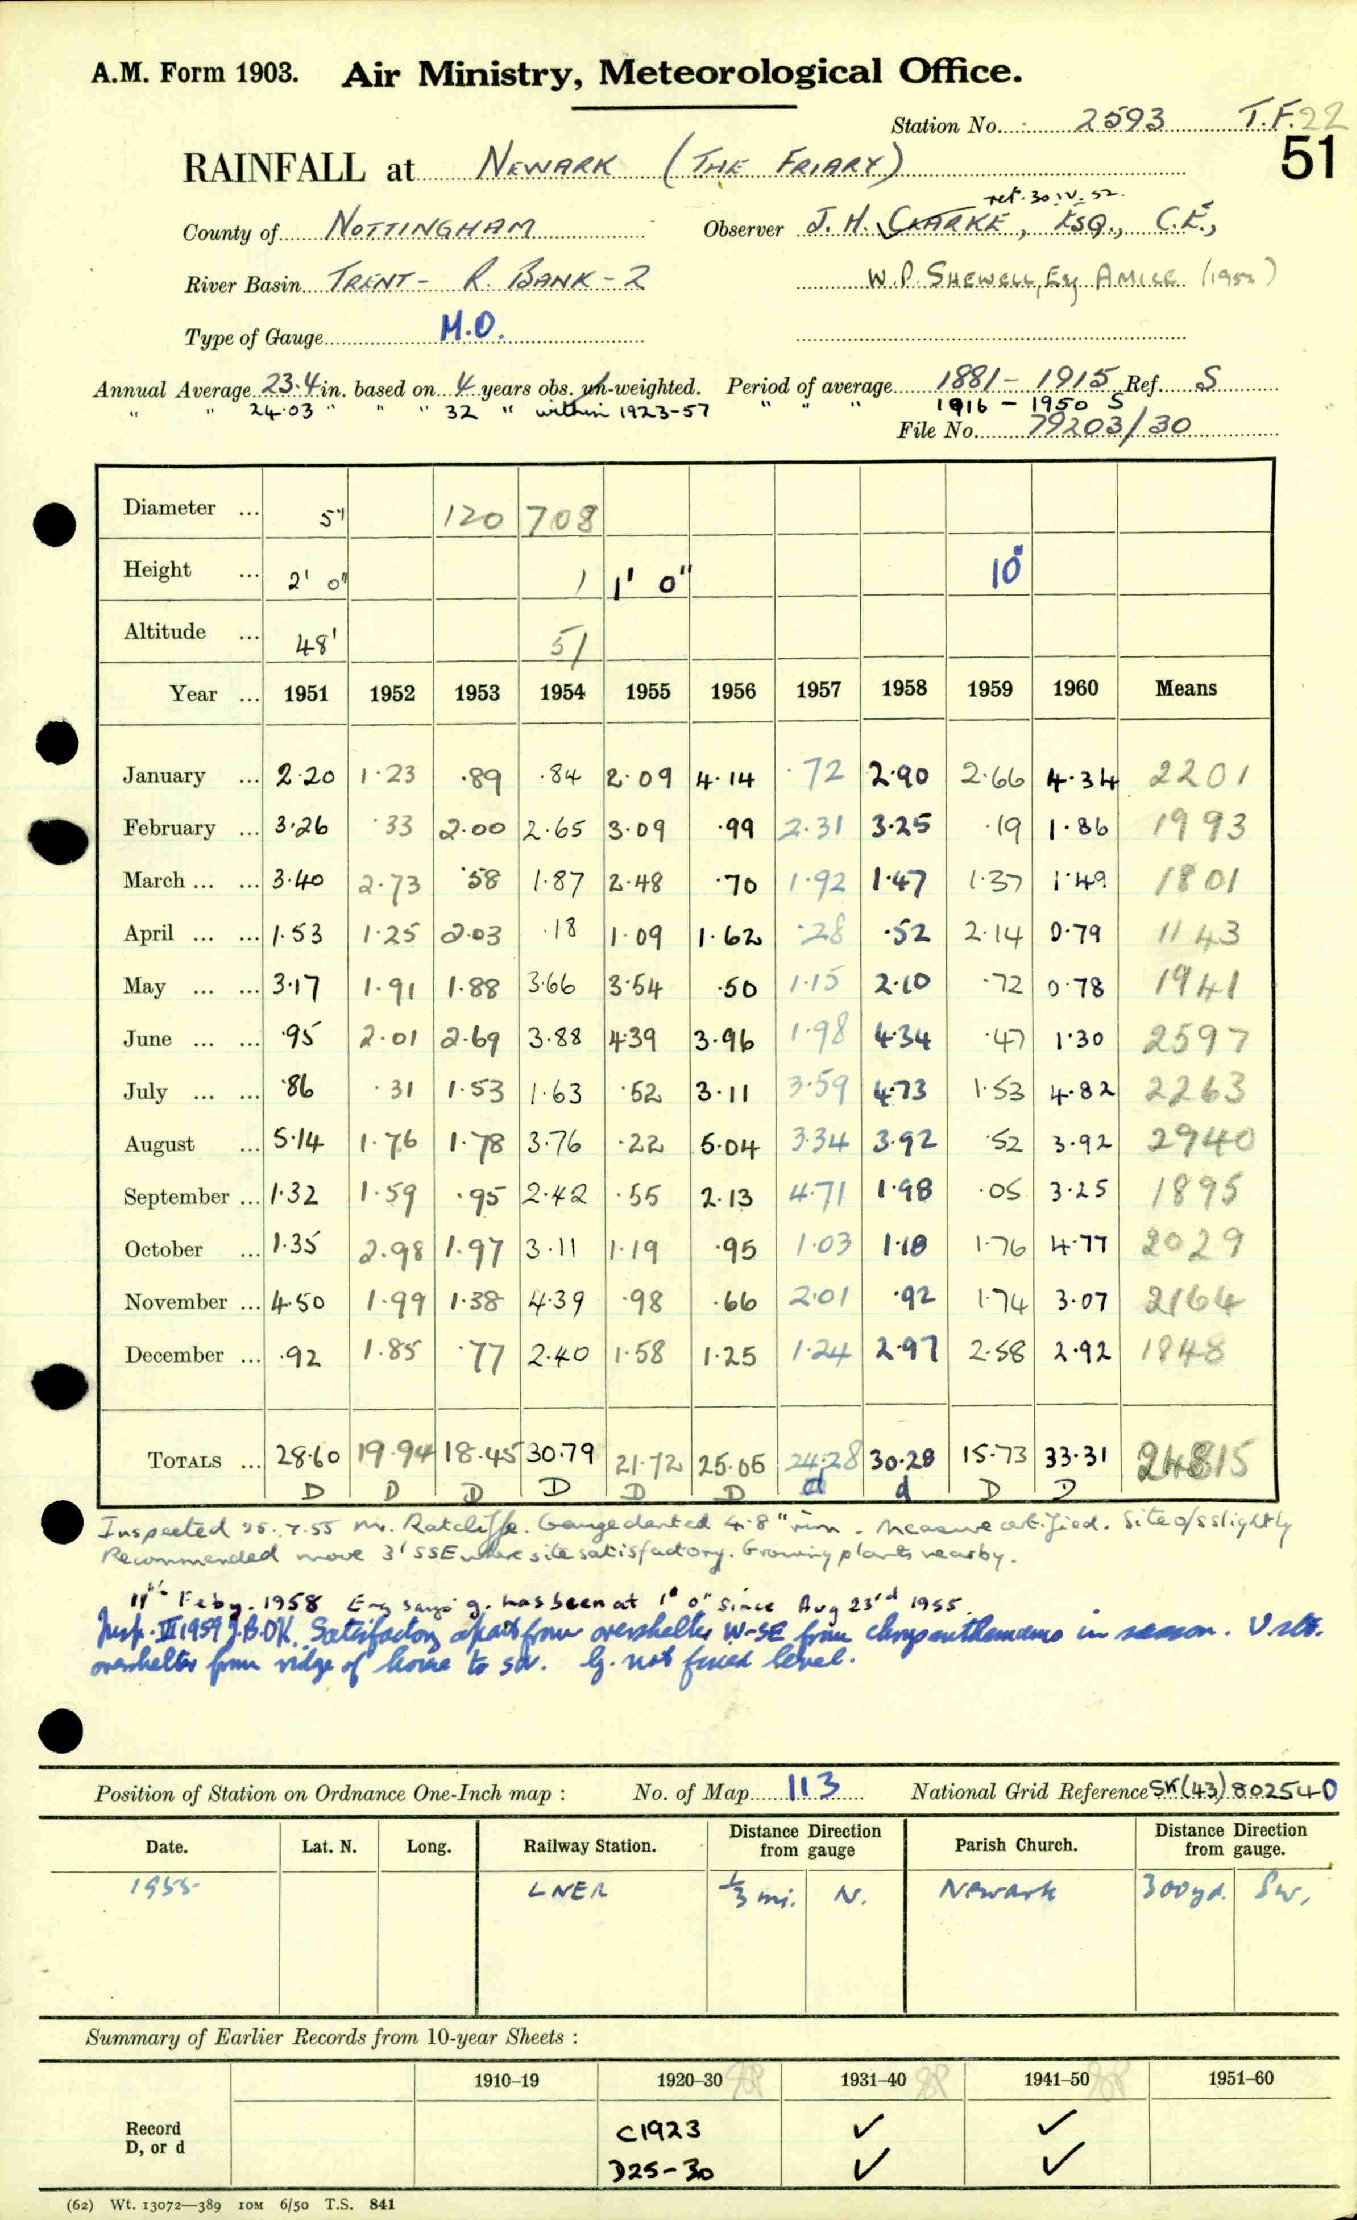 A.M. Form 1903. Air Ministry, Meteorological Office.
Station No. 2593 T.F. 22
51
RAINFALL at NEWARK (THE FRIARY)
ret. 30.IV.52.
County of NOTTINGHAM Observer J. H. CLARKE, ESQ., C.E.,
River Basin TRENT - R. BANK - 2 W.P. SHEWELL, Esq AMICE (1952)
Type of Gauge M.O.
Annual Average 23.4 in. based on 4 years obs. un-weighted. Period of average 1881 - 1915 Ref. S
" " 24.03 " " " 32 " within 1923-57 " " " 1916 - 1950 S
File No. 79203/30
Diameter ... 5" 120 708
Height ... 2' 0" 1 1' 0" 10"
Altitude ... 48' 51
Year ... 1951 1952 1953 1954 1955 1956 1957 1958 1959 1960 Means
January ... 2.20 1.23 .89 .84 2.09 4.14 .72 2.90 2.66 4.34 2201
February ... 3.26 .33 2.00 2.65 3.09 .99 2.31 3.25 .19 1.86 1993
March ... ... 3.40 2.73 .58 1.87 2.48 .70 1.92 1.47 1.37 1.49 1801
April ... ... 1.53 1.25 2.03 .18 1.09 1.62 .28 .52 2.14 0.79 1143
May ... ... 3.17 1.91 1.88 3.66 3.54 .50 1.15 2.10 .72 0.78 1941
June ... ... .95 2.01 2.69 3.88 4.39 3.96 1.98 4.34 .47 1.30 2597
July ... ... .86 .31 1.53 1.63 .52 3.11 3.59 4.73 1.53 4.82 2263
August ... 5.14 1.76 1.78 3.76 .22 5.04 3.34 3.92 .52 3.92 2940
September ... 1.32 1.59 .95 2.42 .55 2.13 4.71 1.98 .05 3.25 1895
October ... 1.35 2.98 1.97 3.11 1.19 .95 1.03 1.18 1.76 4.77 2029
November ... 4.50 1.99 1.38 4.39 .98 .66 2.01 .92 1.74 3.07 2164
December ... .92 1.85 .77 2.40 1.58 1.25 1.24 2.97 2.58 2.92 1848
TOTALS ... 28.60 19.94 18.45 30.79 21.72 25.05 24.28 30.28 15.73 33.31 24815
D D D D D D d d D D
Inspected 25.7.55 Mr. Ratcliffe. Gauge dented 4.8" rim. Measure certified. Site o/s slightly
Recommended move 3' SSE where site satisfactory. Growing plants nearby.
11th Feby. 1958 Esq says g. has been at 1' 0" since Aug 23rd 1955.
Insp. III 1959 J.B.OK. Satisfactory apart from overshelter W-SE from chrysanthemums in season. V. slt.
overshelter from ridge of house to SW. G. not fixed level.
Position of Station on Ordnance One-Inch map : No. of Map 113 National Grid Reference SK(43) 802540
Date. Lat. N. Long. Railway Station. Distance Direction from gauge Parish Church. Distance Direction from gauge.
1955 LNER 1/3 mi. N. Newark 300yd. SW.
Summary of Earlier Records from 10-year Sheets :
1910–19 1920–30 1931–40 1941–50 1951–60
Record C1923 ✓ ✓
D, or d D25-30 ✓ ✓
(62) Wt. 13072—389 10M 6/50 T.S. 841